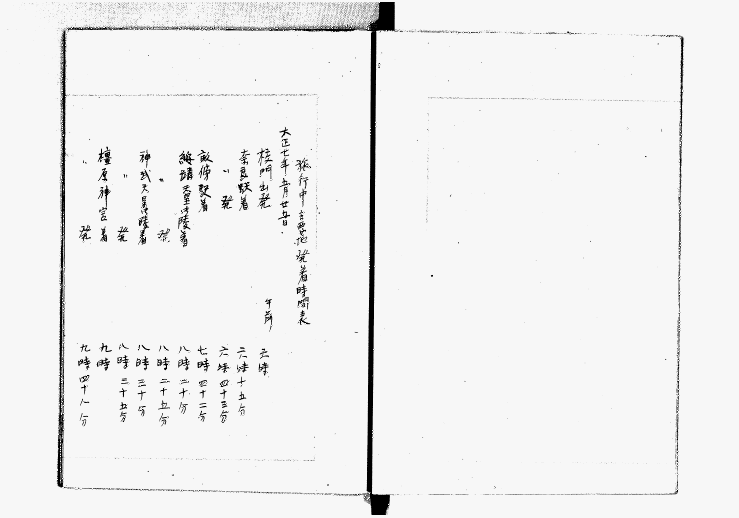 旅行中主要地発着時間表
大正七年五月廿五日
校門出発 午前 六時
奈良駅着 六時十五分
〃 発 六時四十三分
畝傍駅着 七時四十二分
綏靖天皇御陵着 八時二十分
〃 発 八時二十五分
神武天皇御陵着 八時三十分
〃 発 八時三十五分
橿原神宮着 九時
〃 発 九時四十八分